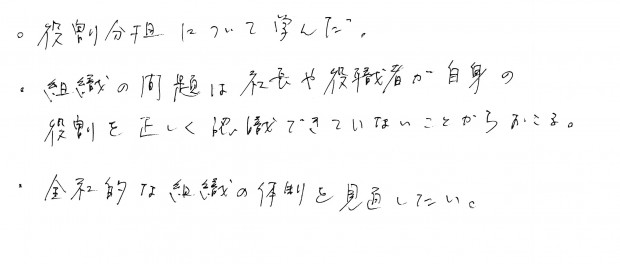 。役割分担について学んだ。
・組織の問題は社長や役職者が自身の
役割を正しく認識できていないことからおこる。
・全社的な組織の体制を見直したい。